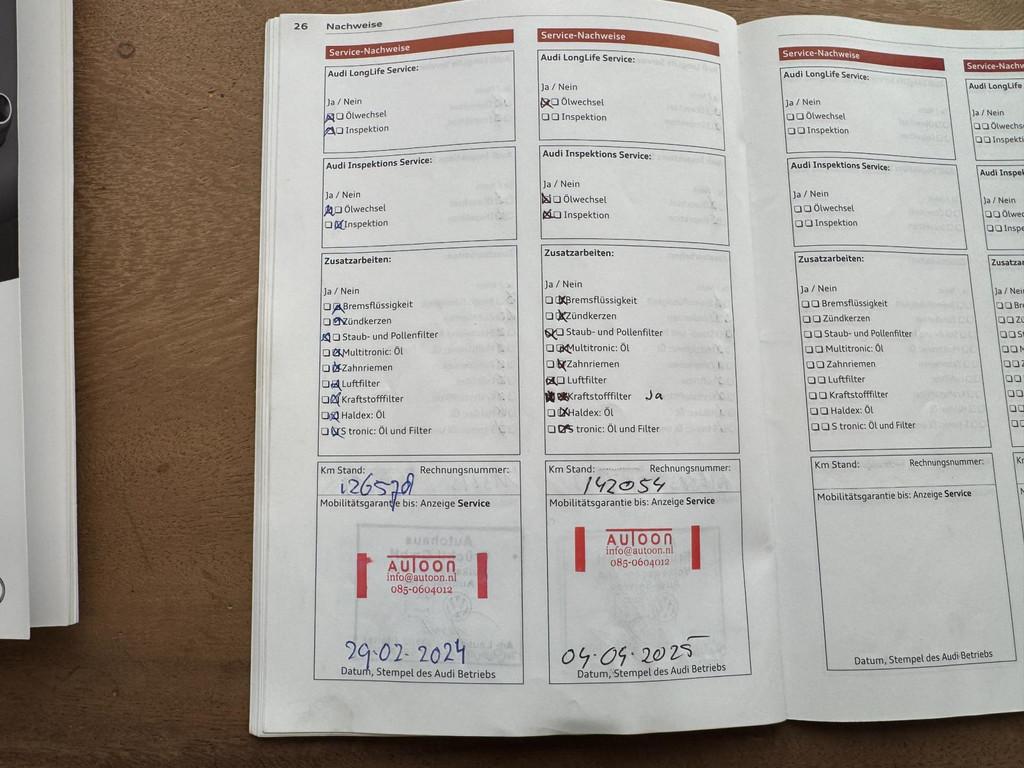 26 Nachweise
Service-Nachweise
Audi LongLife Service:
Ja / Nein
Ölwechsel
Inspektion
Audi Inspektions Service:
Ja / Nein
Ölwechsel
Inspektion
Zusatzarbeiten:
Ja / Nein
Bremsflüssigkeit
Zündkerzen
Staub- und Pollenfilter
Multitronic: Öl
Zahnriemen
Luftfilter
Kraftstofffilter
Haldex: Öl
S tronic: Öl und Filter
Km Stand: Rechnungsnummer:
126578
Mobilitätsgarantie bis: Anzeige Service
Autoon
info@autoon.nl
085-0604012
29-02-2024
Datum, Stempel des Audi Betriebs
Service-Nachweise
Audi LongLife Service:
Ja / Nein
Ölwechsel
Inspektion
Audi Inspektions Service:
Ja / Nein
Ölwechsel
Inspektion
Zusatzarbeiten:
Ja / Nein
Bremsflüssigkeit
Zündkerzen
Staub- und Pollenfilter
Multitronic: Öl
Zahnriemen
Luftfilter
Kraftstofffilter Ja
Haldex: Öl
S tronic: Öl und Filter
Km Stand: Rechnungsnummer:
142054
Mobilitätsgarantie bis: Anzeige Service
Autoon
info@autoon.nl
085-0604012
04-04-2025
Datum, Stempel des Audi Betriebs
Service-Nachweise
Audi LongLife Service:
Ja / Nein
Ölwechsel
Inspektion
Audi Inspektions Service:
Ja / Nein
Ölwechsel
Inspektion
Zusatzarbeiten:
Ja / Nein
Bremsflüssigkeit
Zündkerzen
Staub- und Pollenfilter
Multitronic: Öl
Zahnriemen
Luftfilter
Kraftstofffilter
Haldex: Öl
S tronic: Öl und Filter
Km Stand: Rechnungsnummer:
Mobilitätsgarantie bis: Anzeige Service
Datum, Stempel des Audi Betriebs
Service-Nachw
Audi LongLife
Ja / Nein
Ölwechs
Inspekti
Audi Inspek
Ja / Nein
Ölwe
Inspe
Zusatzar
Ja / Ne